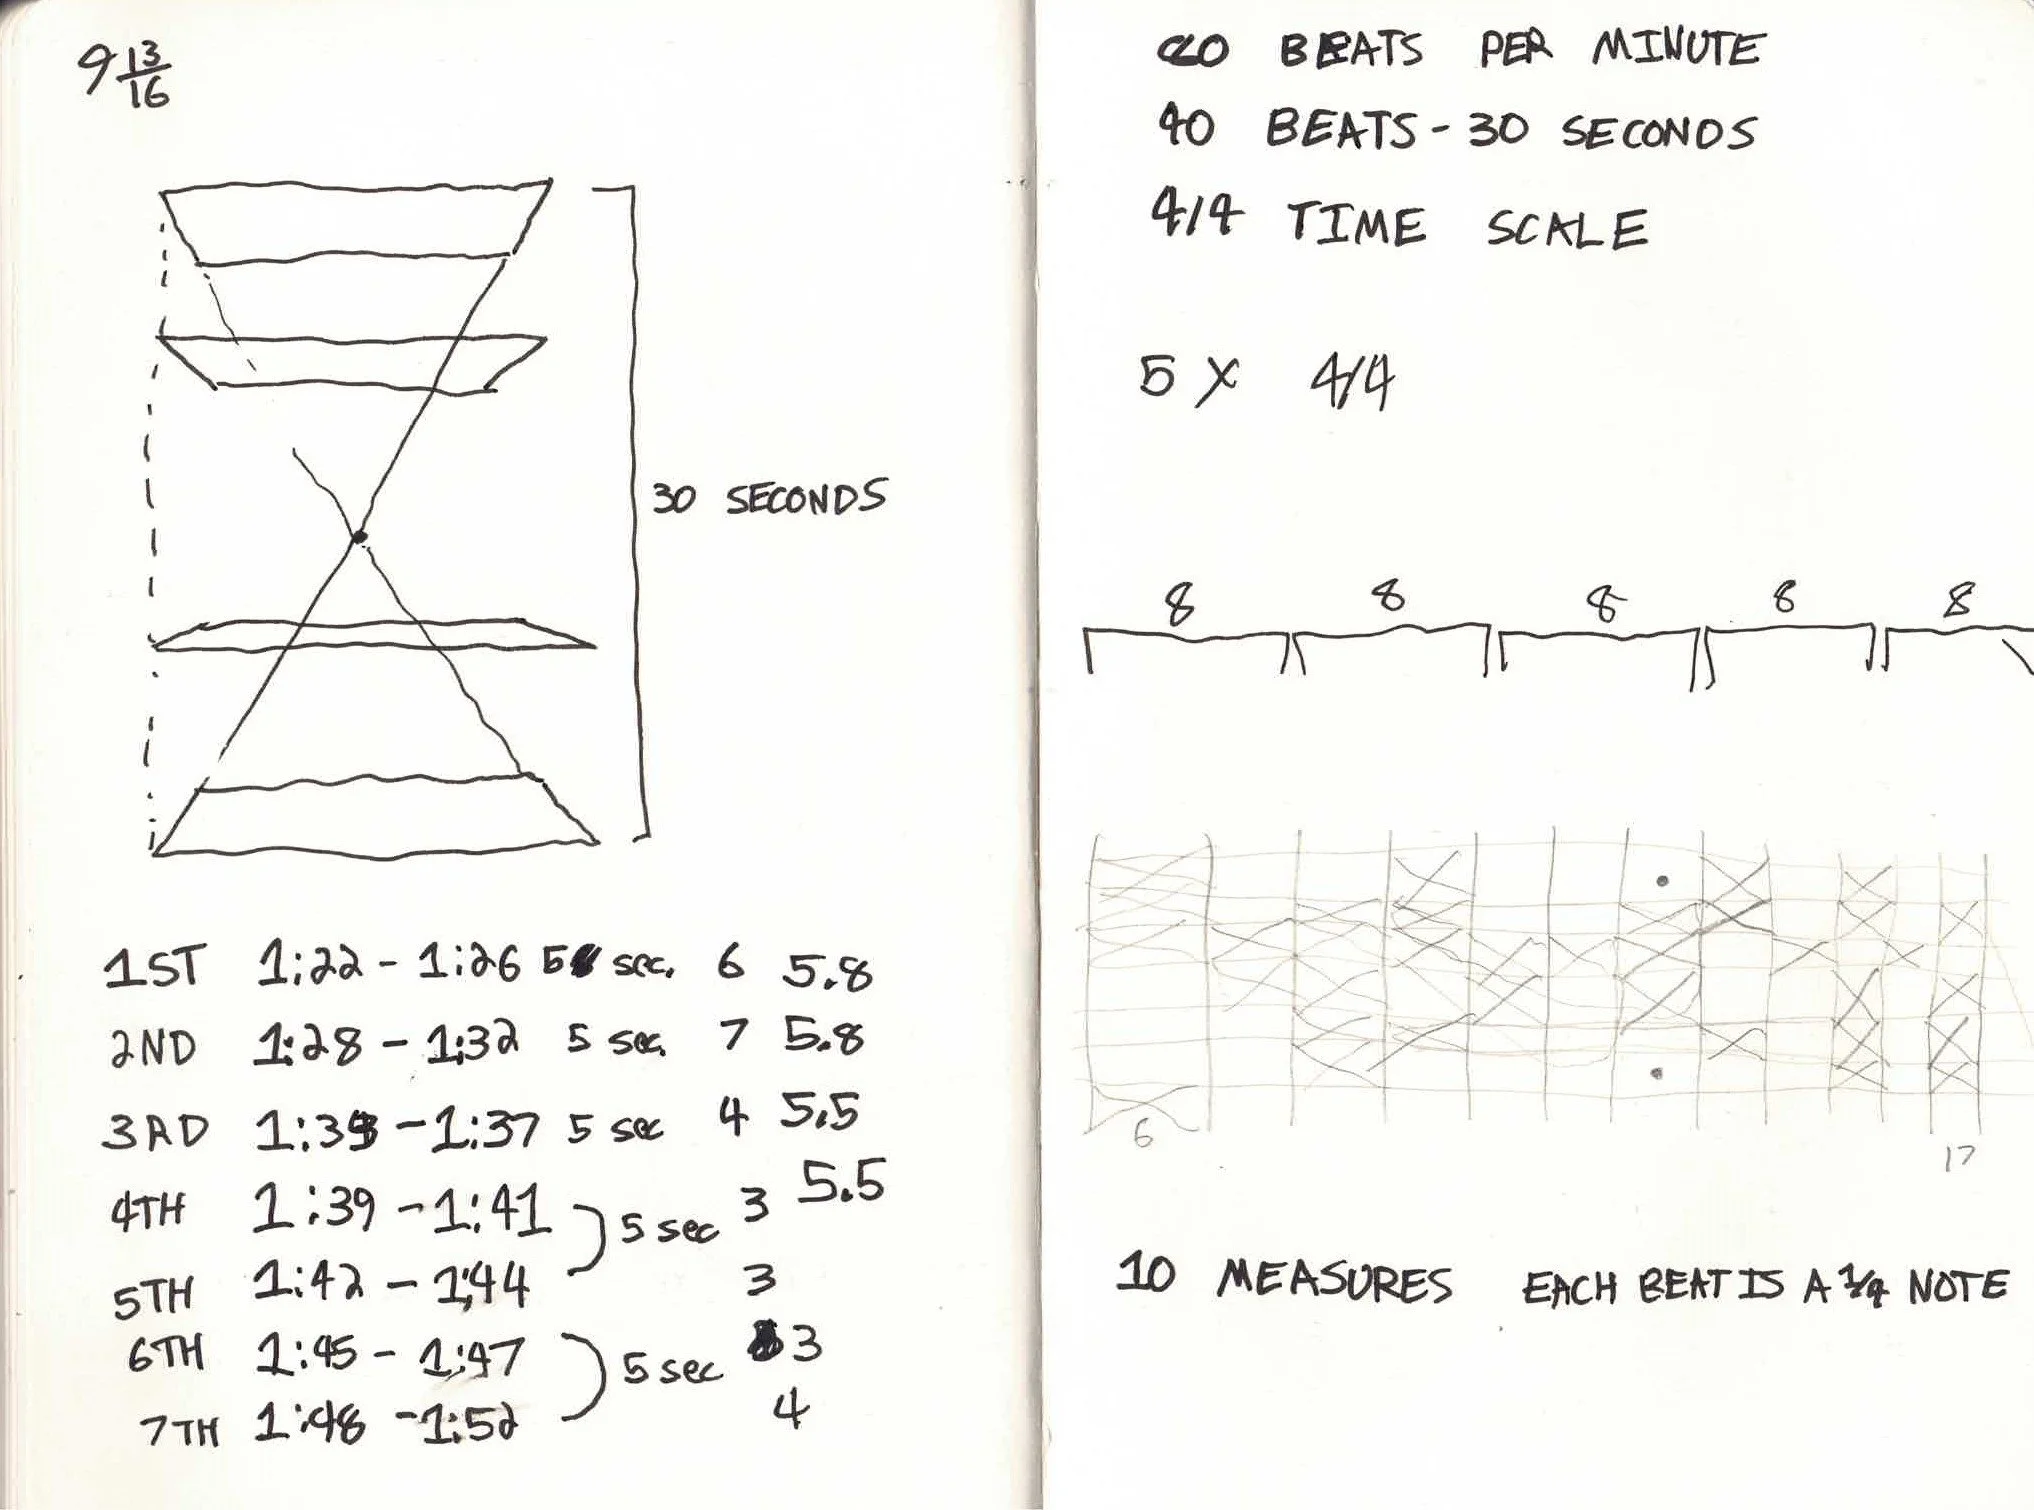 9 13/16
30 SECONDS
1ST 1:22 - 1:26 5 sec. 6 5.8
2ND 1:28 - 1:32 5 sec. 7 5.8
3RD - 1:37 5 sec 4 5.5
4TH 1:39 - 1:41 5 sec 3 5.5
5TH 1:42 - 1:44 3
6TH 1:45 - 1:47 5 sec 3
7TH 1:48 - 1:52 4
BEATS PER MINUTE
40 BEATS - 30 SECONDS
4/4 TIME SCALE
5 X 4/4
8 8 8 8 8
6 17
10 MEASURES EACH BEAT IS A 1/4 NOTE